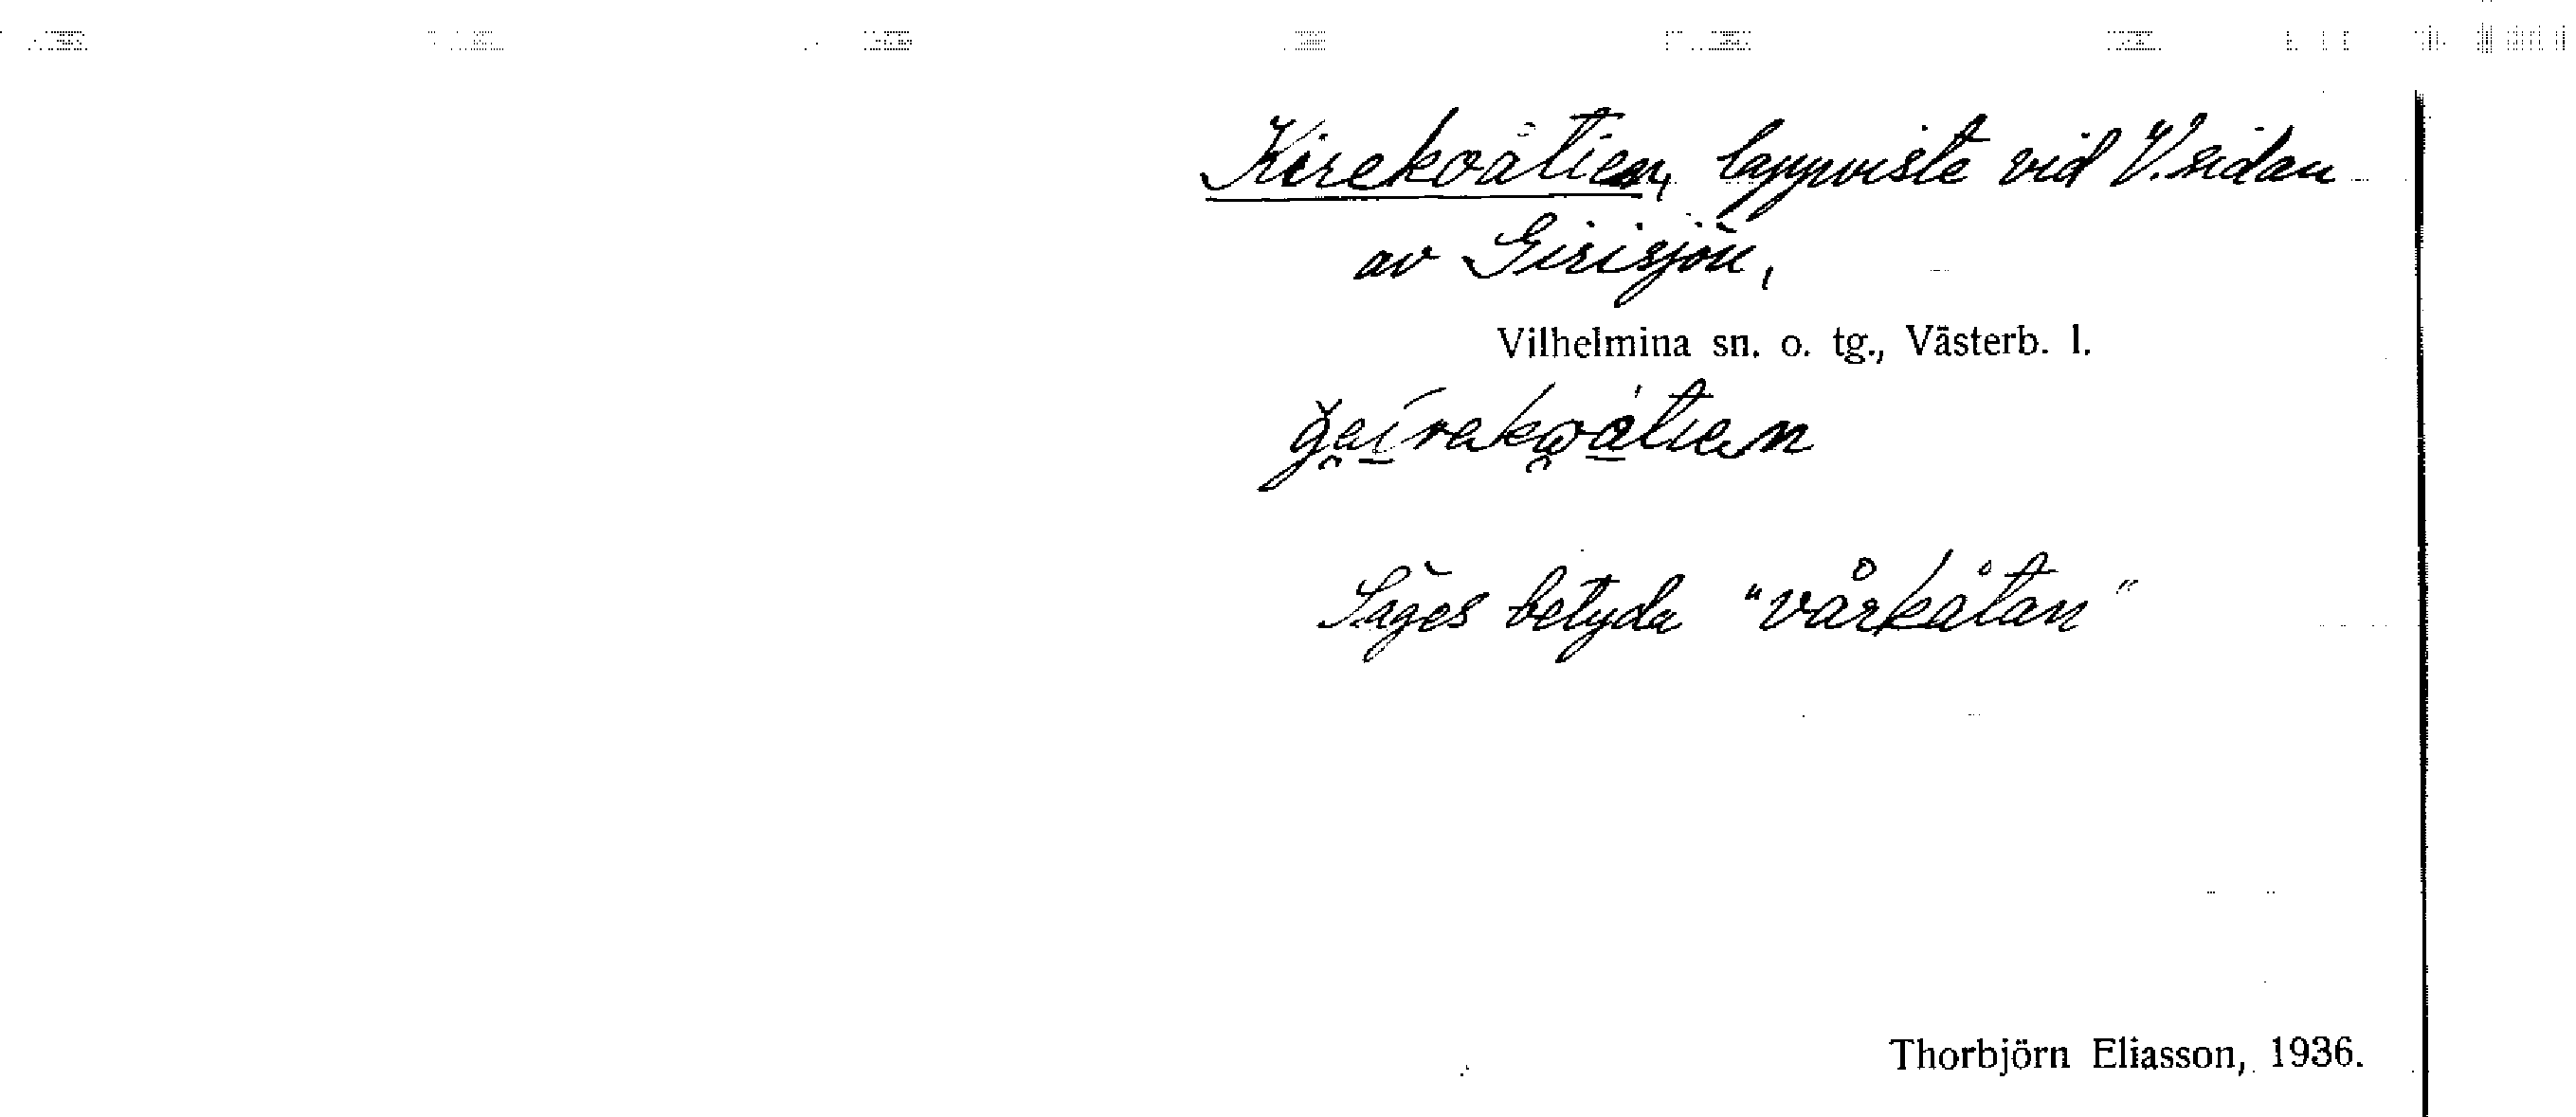 Kirekoåtien, lappviste vid V. sidan
av Girisjön,
Vilhelmina sn. o. tg., Västerb. l.
Säges betyda "vårkåtan"
Thorbjörn Eliasson, 1936.